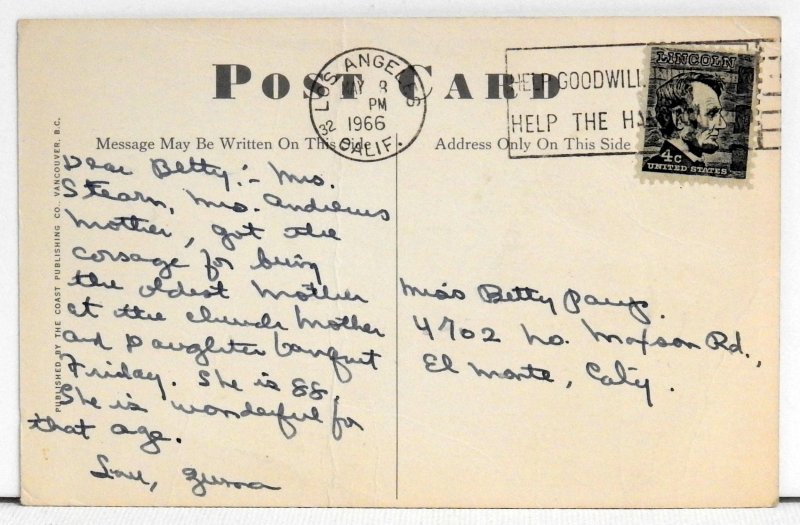 POST CARD
LOS ANGELES
MAY 8
PM
1966
32 CALIF.
HELP GOODWILL
HELP THE HA
LINCOLN
4c
UNITED STATES
Message May Be Written On This Side
Address Only On This Side
PUBLISHED BY THE COAST PUBLISHING CO., VANCOUVER, B.C.
Dear Betty:- Mrs.
Stearn, Mrs. Andrews
Mother, got the
corsage for being
the oldest Mother
at the church Mother
and Daughter banquet
Friday. She is 88.
She is wonderful for
that age.
Love, Zuma
Miss Betty
4702 No. Maxson Rd.,
El Monte, Calif.